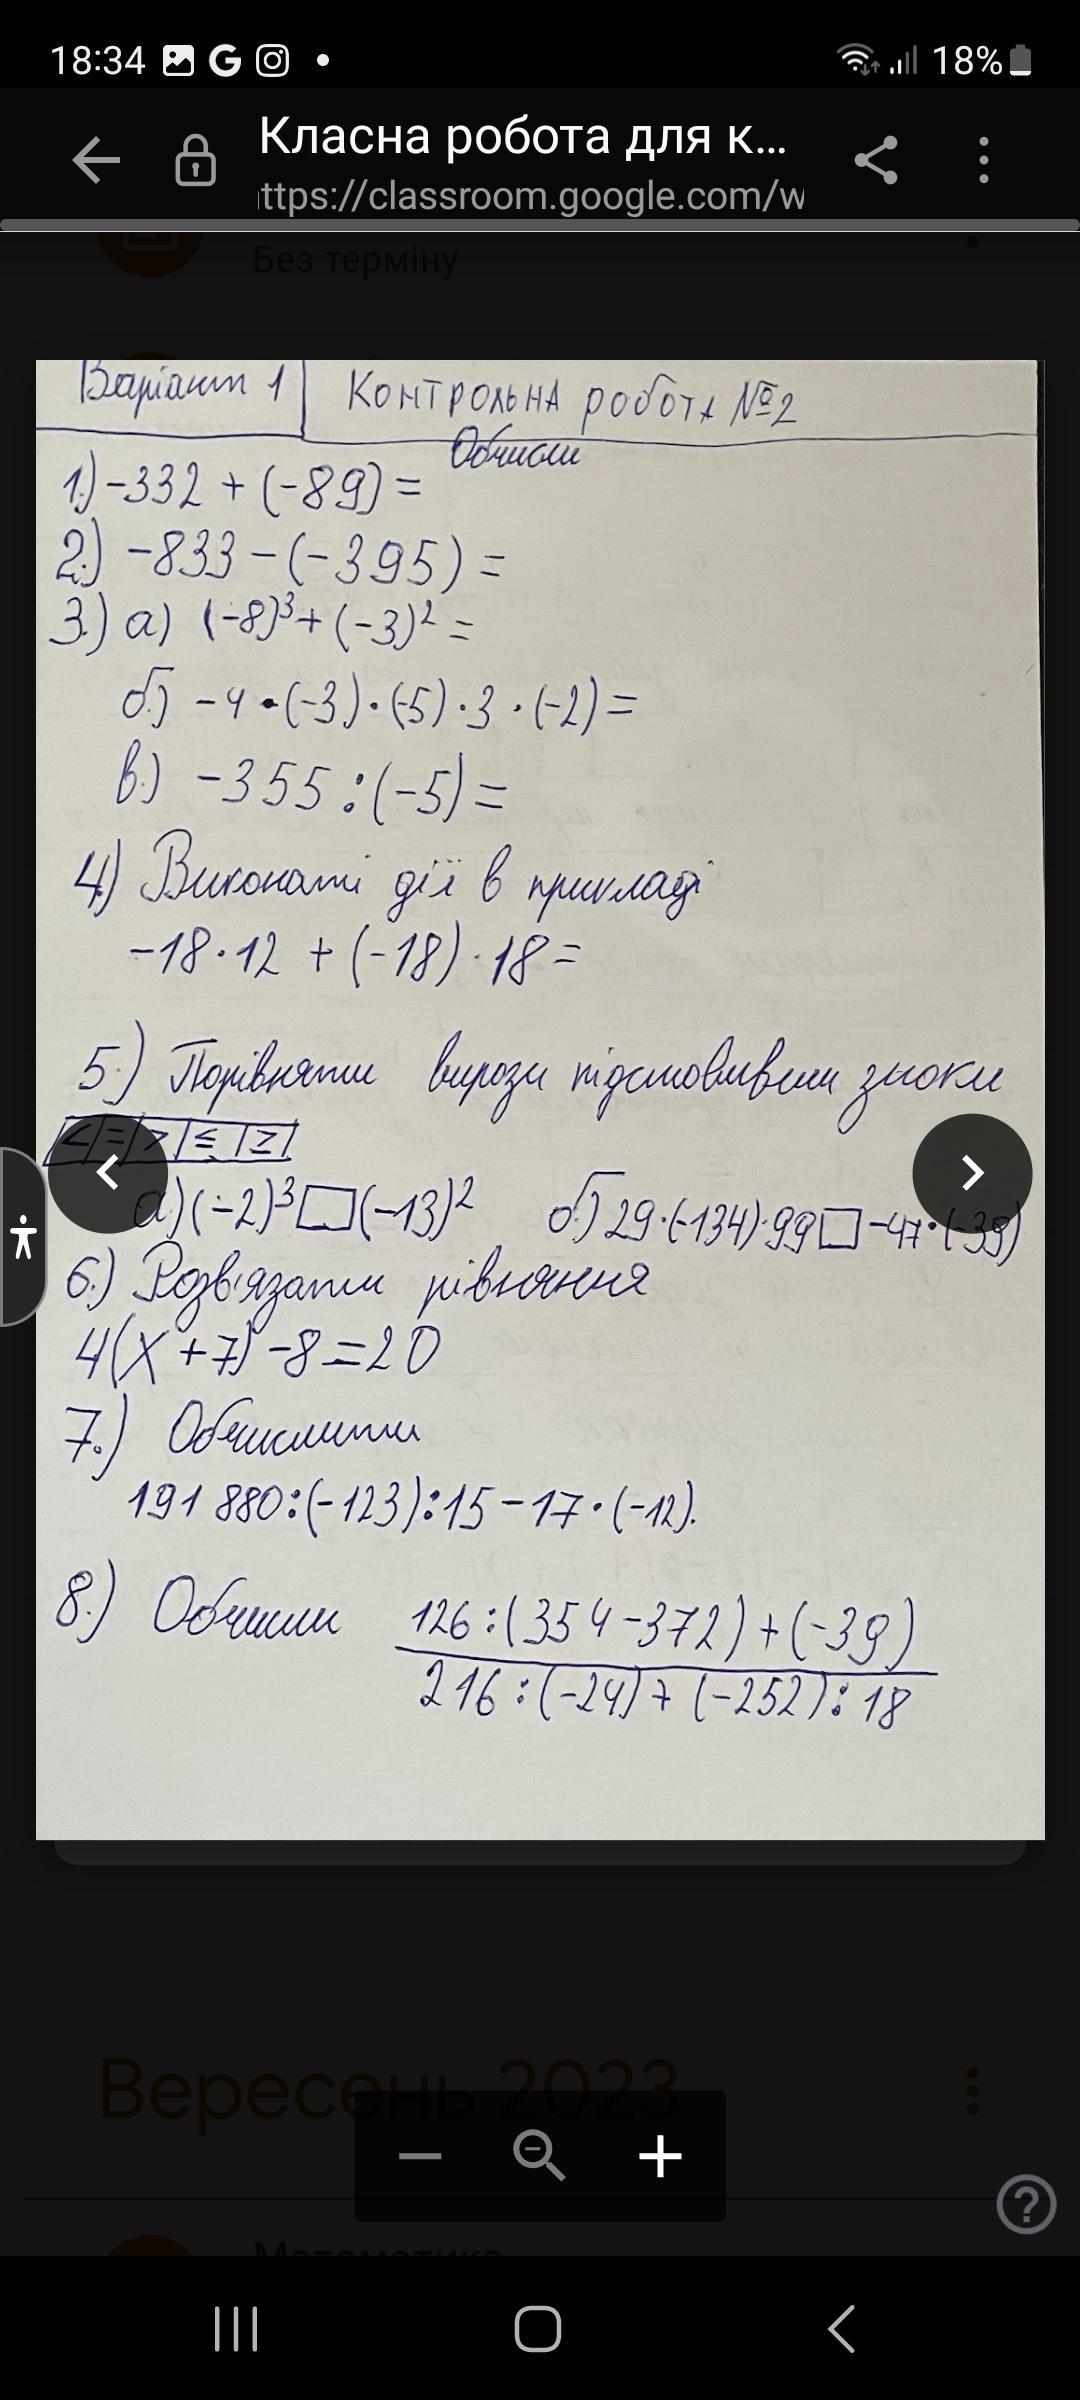 18:34
18%
Класна робота для к...
ttps://classroom.google.com/w
Без терміну
Варіант 1 Контрольна робота №2
Обчисли
1.) -332 + (-89) =
2.) -833 - (-395) =
3.) а) (-8)³ + (-3)² =
б.) -4 · (-3) · (-5) · 3 · (-2) =
в.) -355 : (-5) =
4.) Виконати дії в прикладі
-18 · 12 + (-18) · 18 =
5.) Порівняти вирази підставивши знаки
< | = | > | ≤ | ≥
а) (-2)³ □ (-13)² б.) 29 · (-134) · 99 □ -47 · (-39)
6.) Розв'язати рівняння
4(x + 7) - 8 = 20
7.) Обчислити
191 880 : (-123) : 15 - 17 · (-12).
8.) Обчисли 126 : (354 - 372) + (-39)
216 : (-24) + (-252) : 18
Вересень 2023
Математика